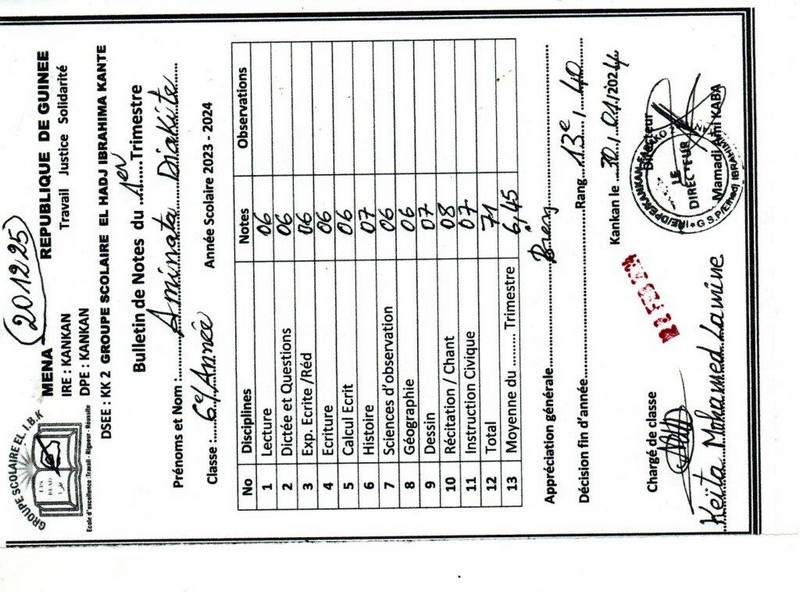 201225
GROUPE SCOLAIRE EL I.B.K
Ecole d'excellence :Travail - Rigueur - Réussite
MENA REPUBLIQUE DE GUINEE
IRE : KANKAN Travail Justice Solidarité
DPE : KANKAN
DSEE : KK 2 GROUPE SCOLAIRE EL HADJ IBRAHIMA KANTE
Bulletin de Notes du 1er Trimestre
Prénoms et Nom : Aminata Diakite
Classe : 6e/Année Année Scolaire 2023 - 2024
No Disciplines Notes Observations
1 Lecture 06
2 Dictée et Questions 06
3 Exp. Ecrite /Réd 06
4 Ecriture 06
5 Calcul Ecrit 06
6 Histoire 07
7 Sciences d'observation 06
8 Géographie 06
9 Dessin 07
10 Récitation / Chant 08
11 Instruction Civique 07
12 Total 71
13 Moyenne du ........ Trimestre 6,45
Appréciation générale Bien
Décision fin d'année Rang 13e / 40
Kankan le 30/01/2024
Chargé de classe Directeur
LE DIRECTEUR
Keita Mohamed Lamine Mamadi Ami KABA